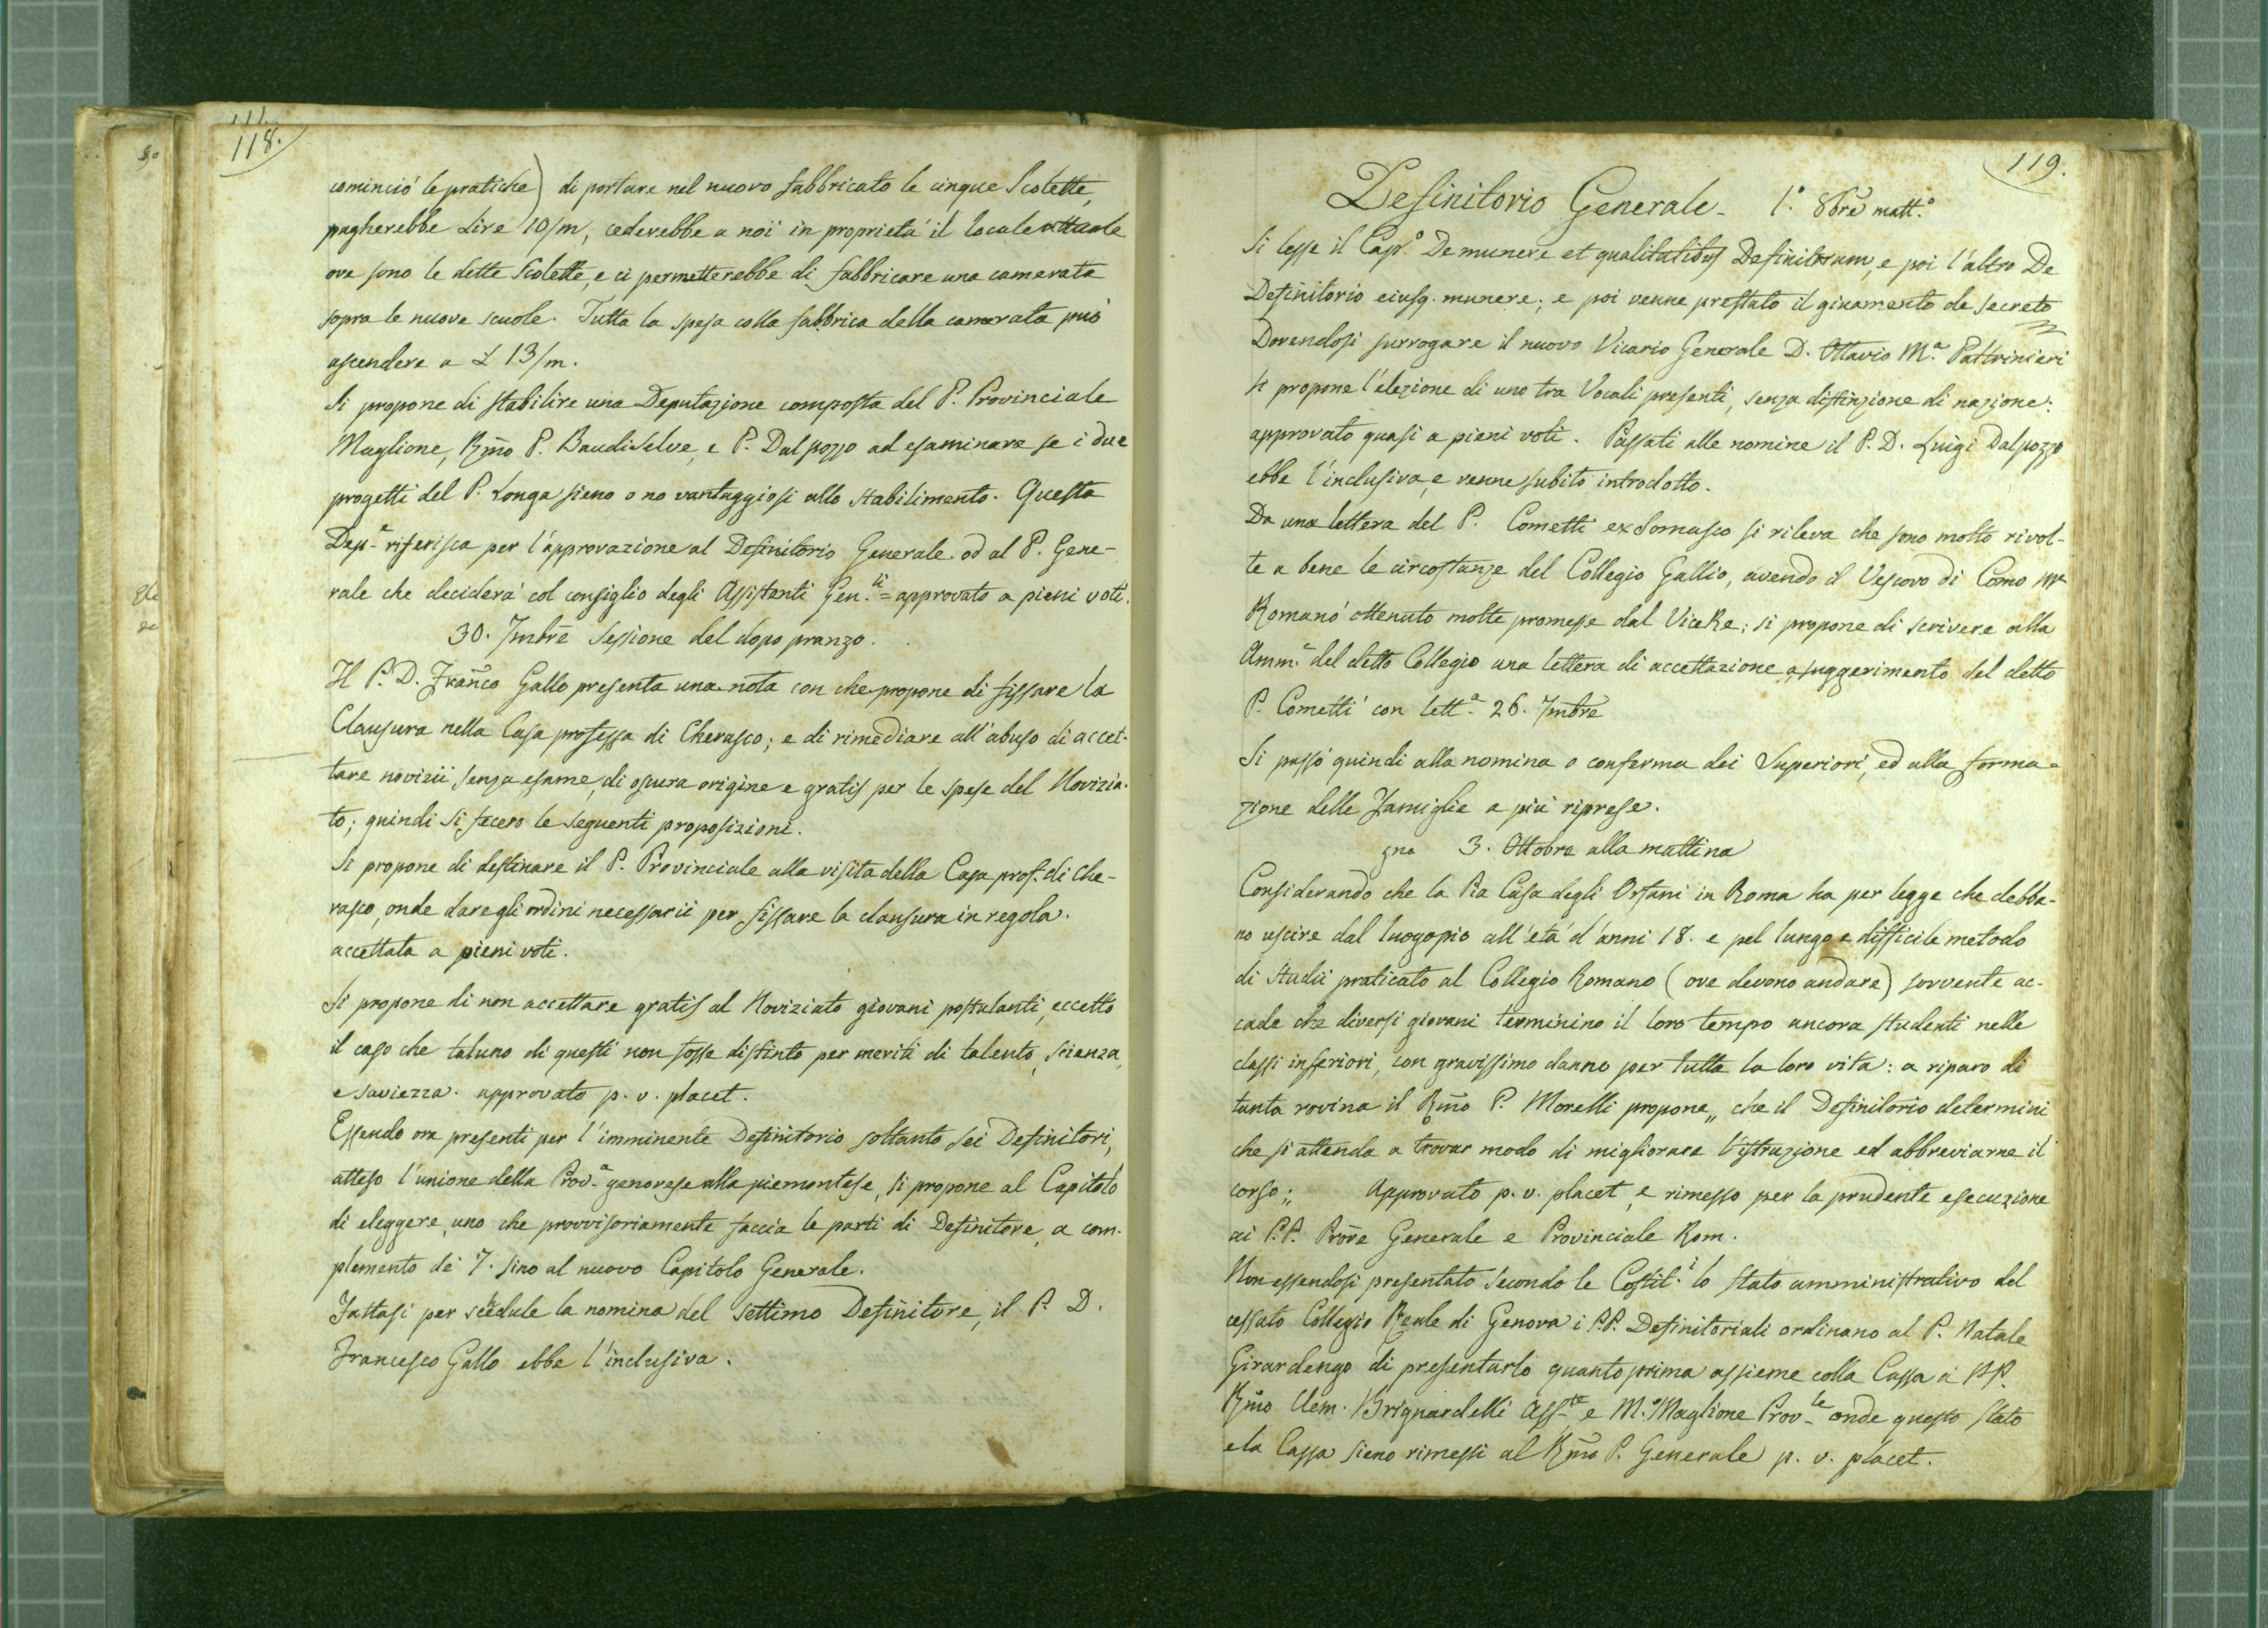 118.
cominciò le pratiche) di portare nel nuovo fabbricato le cinque Scolette,
pagherebbe Lire 10/m, cederebbe a noi in proprietà il locale attuale
ove sono le dette Scolette, e ci permetterebbe di fabbricare una camerata
sopra le nuove scuole. Tutta la spesa colla fabbrica della camerata può
ascendere a L 13/m.
Si propone di stabilire una Deputazione composta del P. Provinciale
Maglione, Rmo P. Baudi Selve, e P. Dalpozzo ad esaminare se i due
progetti del P. Longa sieno o no vantaggiosi allo stabilimento. Questa
Depne riferisca per l'approvazione al Definitorio Generale od al P. Gene-
rale che deciderà col consiglio degli Assistenti Gen.li = approvato a pieni voti.
30. 7mbre Sessione del dopo pranzo.
Il P. D. Franco Gallo presenta una nota con che propone di fissare la
Clausura nella Casa professa di Cherasco; e di rimediare all'abuso di accet-
tare novizii senza esame, di oscura origine e gratis per le spese del Novizia-
to; quindi si fecero le seguenti proposizioni.
Si propone di destinare il P. Provinciale alla visita della Casa prof. di Che-
rasco, onde dare gli ordini necessarii per fissare la clausura in regola.
accettata a pieni voti.
Si propone di non accettare gratis al Noviziato giovani postulanti, eccetto
il caso che taluno di questi non fosse distinto per meriti di talento, scienza,
e saviezza. approvato p. v. placet.
Essendo ora presenti per l'imminente Definitorio soltanto sei Definitori,
atteso l'unione della Prov.a genovese alla piemontese, si propone al Capitolo
di eleggere, uno che provvisoriamente faccia le parti di Definitore, a com-
plemento dei 7. sino al nuovo Capitolo Generale.
Fattasi per schedule la nomina del settimo Definitore, il P. D.
Francesco Gallo ebbe l'inclusiva.
119.
Definitorio Generale - 1.° 8bre matt.°
Si lesse il Cap.° De munere et qualitatibus Definitorum, e poi l'altro De
Definitorio eiusq. munere; e poi venne prestato il giuramento de secreto
Dovendosi surrogare il nuovo Vicario Generale D. Ottavio M.a Paltrinieri
si propone l'elezione di uno tra Vocali presenti, senza distinzione di nazione:
approvato quasi a pieni voti. Passati alle nomine il P. D. Luigi Dalpozzo
ebbe l'inclusiva, e venne subito introdotto.
Da una lettera del P. Cometti exSomasco si rileva che sono molto rivol-
te a bene le circostanze del Collegio Gallio, avendo il Vescovo di Como Mr
Romanò ottenuto molte promesse dal ViceRe; si propone di scrivere alla
Amm.ne del detto Collegio una lettera di accettazione a suggerimento del detto
P. Cometti con lett.a 26. 7mbre
Si passò quindi alla nomina o conferma dei Superiori, ed alla forma-
zione delle Famiglie a più riprese.
3. Ottobre alla mattina
Considerando che la Pia Casa degli Orfani in Roma ha per legge che debba-
no uscire dal luogopio all'età d'anni 18. e pel lungo e difficile metodo
di studii praticato al Collegio Romano (ove devono andare) sovvente ac-
cade che diversi giovani terminino il loro tempo ancora studenti nelle
classi inferiori, con gravissimo danno per tutta la loro vita: a riparo di
tanta rovina il Rmo P. Morelli propone „ che il Definitorio determini
che si attenda a trovar modo di migliorare l'istruzione ed abbreviarne il
corso; „ Approvato p. v. placet, e rimesso per la prudente esecuzione
ai P.P. Prore Generale e Provinciale Rom.
Non essendosi presentato secondo le Costit.i lo stato amministrativo del
cessato Collegio Reale di Genova i P.P. Definitoriali ordinano al P. Natale
Girardengo di presentarlo quanto prima assieme colla Cassa ai PP.
Rmo Clem. Brignardelli Ass.te e M.° Maglione Prov.le onde questo stato
e la Cassa sieno rimessi al Rmo P. Generale p. v. placet.